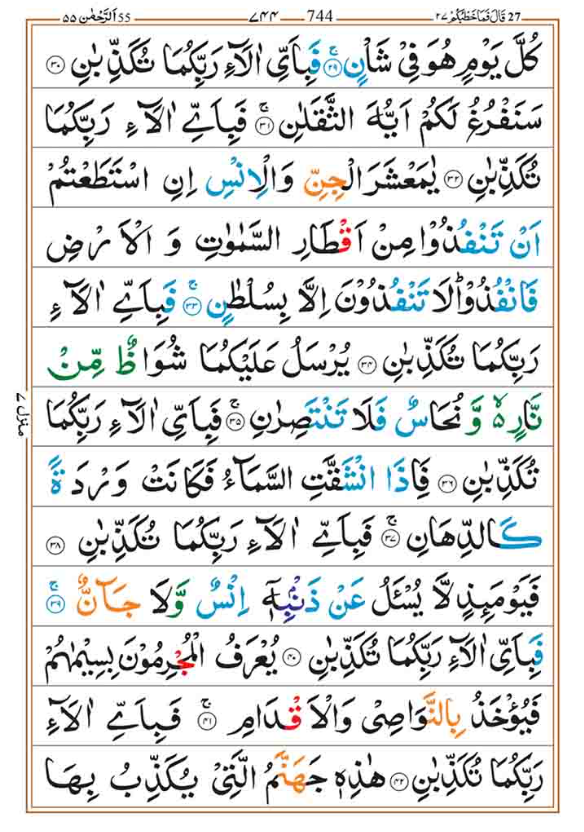 27 قَالَ فَمَا خَطْبُكُمْ ٢٧ 744 ٧٤٤ 55 اَلرَّحْمٰن ٥٥
كُلَّ يَوْمٍ هُوَ فِيْ شَاْنٍ ۚ‏﴿۲۹﴾ فَبِاَيِّ اٰلَآءِ رَبِّكُمَا تُكَذِّبٰنِ ﴿۳۰﴾
سَنَفْرُغُ لَكُمْ اَيُّهَ الثَّقَلٰنِ ۚ‏﴿۳۱﴾ فَبِاَيِّ اٰلَآءِ رَبِّكُمَا
تُكَذِّبٰنِ ﴿۳۲﴾ يٰمَعْشَرَ الْجِنِّ وَالْاِنْسِ اِنِ اسْتَطَعْتُمْ
اَنْ تَنْفُذُوْا مِنْ اَقْطَارِ السَّمٰوٰتِ وَ الْاَرْضِ
فَانْفُذُوْا ؕ لَا تَنْفُذُوْنَ اِلَّا بِسُلْطٰنٍ ۚ‏﴿۳۳﴾ فَبِاَيِّ اٰلَآءِ
رَبِّكُمَا تُكَذِّبٰنِ ﴿۳۴﴾ يُرْسَلُ عَلَيْكُمَا شُوَاظٌ مِّنْ
نَّارٍ ۵ وَّ نُحَاسٌ فَلَا تَنْتَصِرٰنِ ۚ‏﴿۳۵﴾ فَبِاَيِّ اٰلَآءِ رَبِّكُمَا
تُكَذِّبٰنِ ﴿۳۶﴾ فَاِذَا انْشَقَّتِ السَّمَآءُ فَكَانَتْ وَرْدَةً
كَالدِّهَانِ ۚ‏﴿۳۷﴾ فَبِاَيِّ اٰلَآءِ رَبِّكُمَا تُكَذِّبٰنِ ﴿۳۸﴾
فَيَوْمَىِٕذٍ لَّا يُسْـَٔلُ عَنْ ذَنْۢبِهٖۤ اِنْسٌ وَّلَا جَآنٌّ ۚ‏﴿۳۹﴾
فَبِاَيِّ اٰلَآءِ رَبِّكُمَا تُكَذِّبٰنِ ﴿۴۰﴾ يُعْرَفُ الْمُجْرِمُوْنَ بِسِيْمٰىهُمْ
فَيُؤْخَذُ بِالنَّوَاصِيْ وَالْاَقْدَامِ ۚ‏﴿۴۱﴾ فَبِاَيِّ اٰلَآءِ
رَبِّكُمَا تُكَذِّبٰنِ ﴿۴۲﴾ هٰذِهٖ جَهَنَّمُ الَّتِيْ يُكَذِّبُ بِهَا
منزل ٧